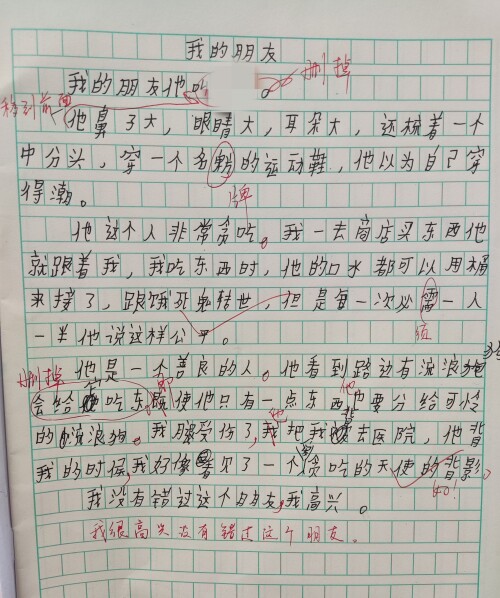 我的朋友
我的朋友他 删掉
移到前面
他鼻子大，眼睛大，耳朵大，还梳着一个
中分头，穿一个名粺的运动鞋，他以为自己穿
牌
得潮。
他这个人非常贪吃。我一去商店买东西他
就跟着我，我吃东西时，他的口水都可以用桶
来接了，跟饿死鬼转世，但是每一次必需一人
须
一半他说这样公平。
删掉
他是一个善良的人。他看到路边有流浪狗
会给吃东 即使他只有一点东西他也要分给可怜
的流浪狗。我腿受伤了，他把我背去医院，他背
我的时候，我好像看见了一个贪吃的天使的背影，
40！
我没有错过这个朋友，我高兴。
我很高兴没有错过这个朋友。